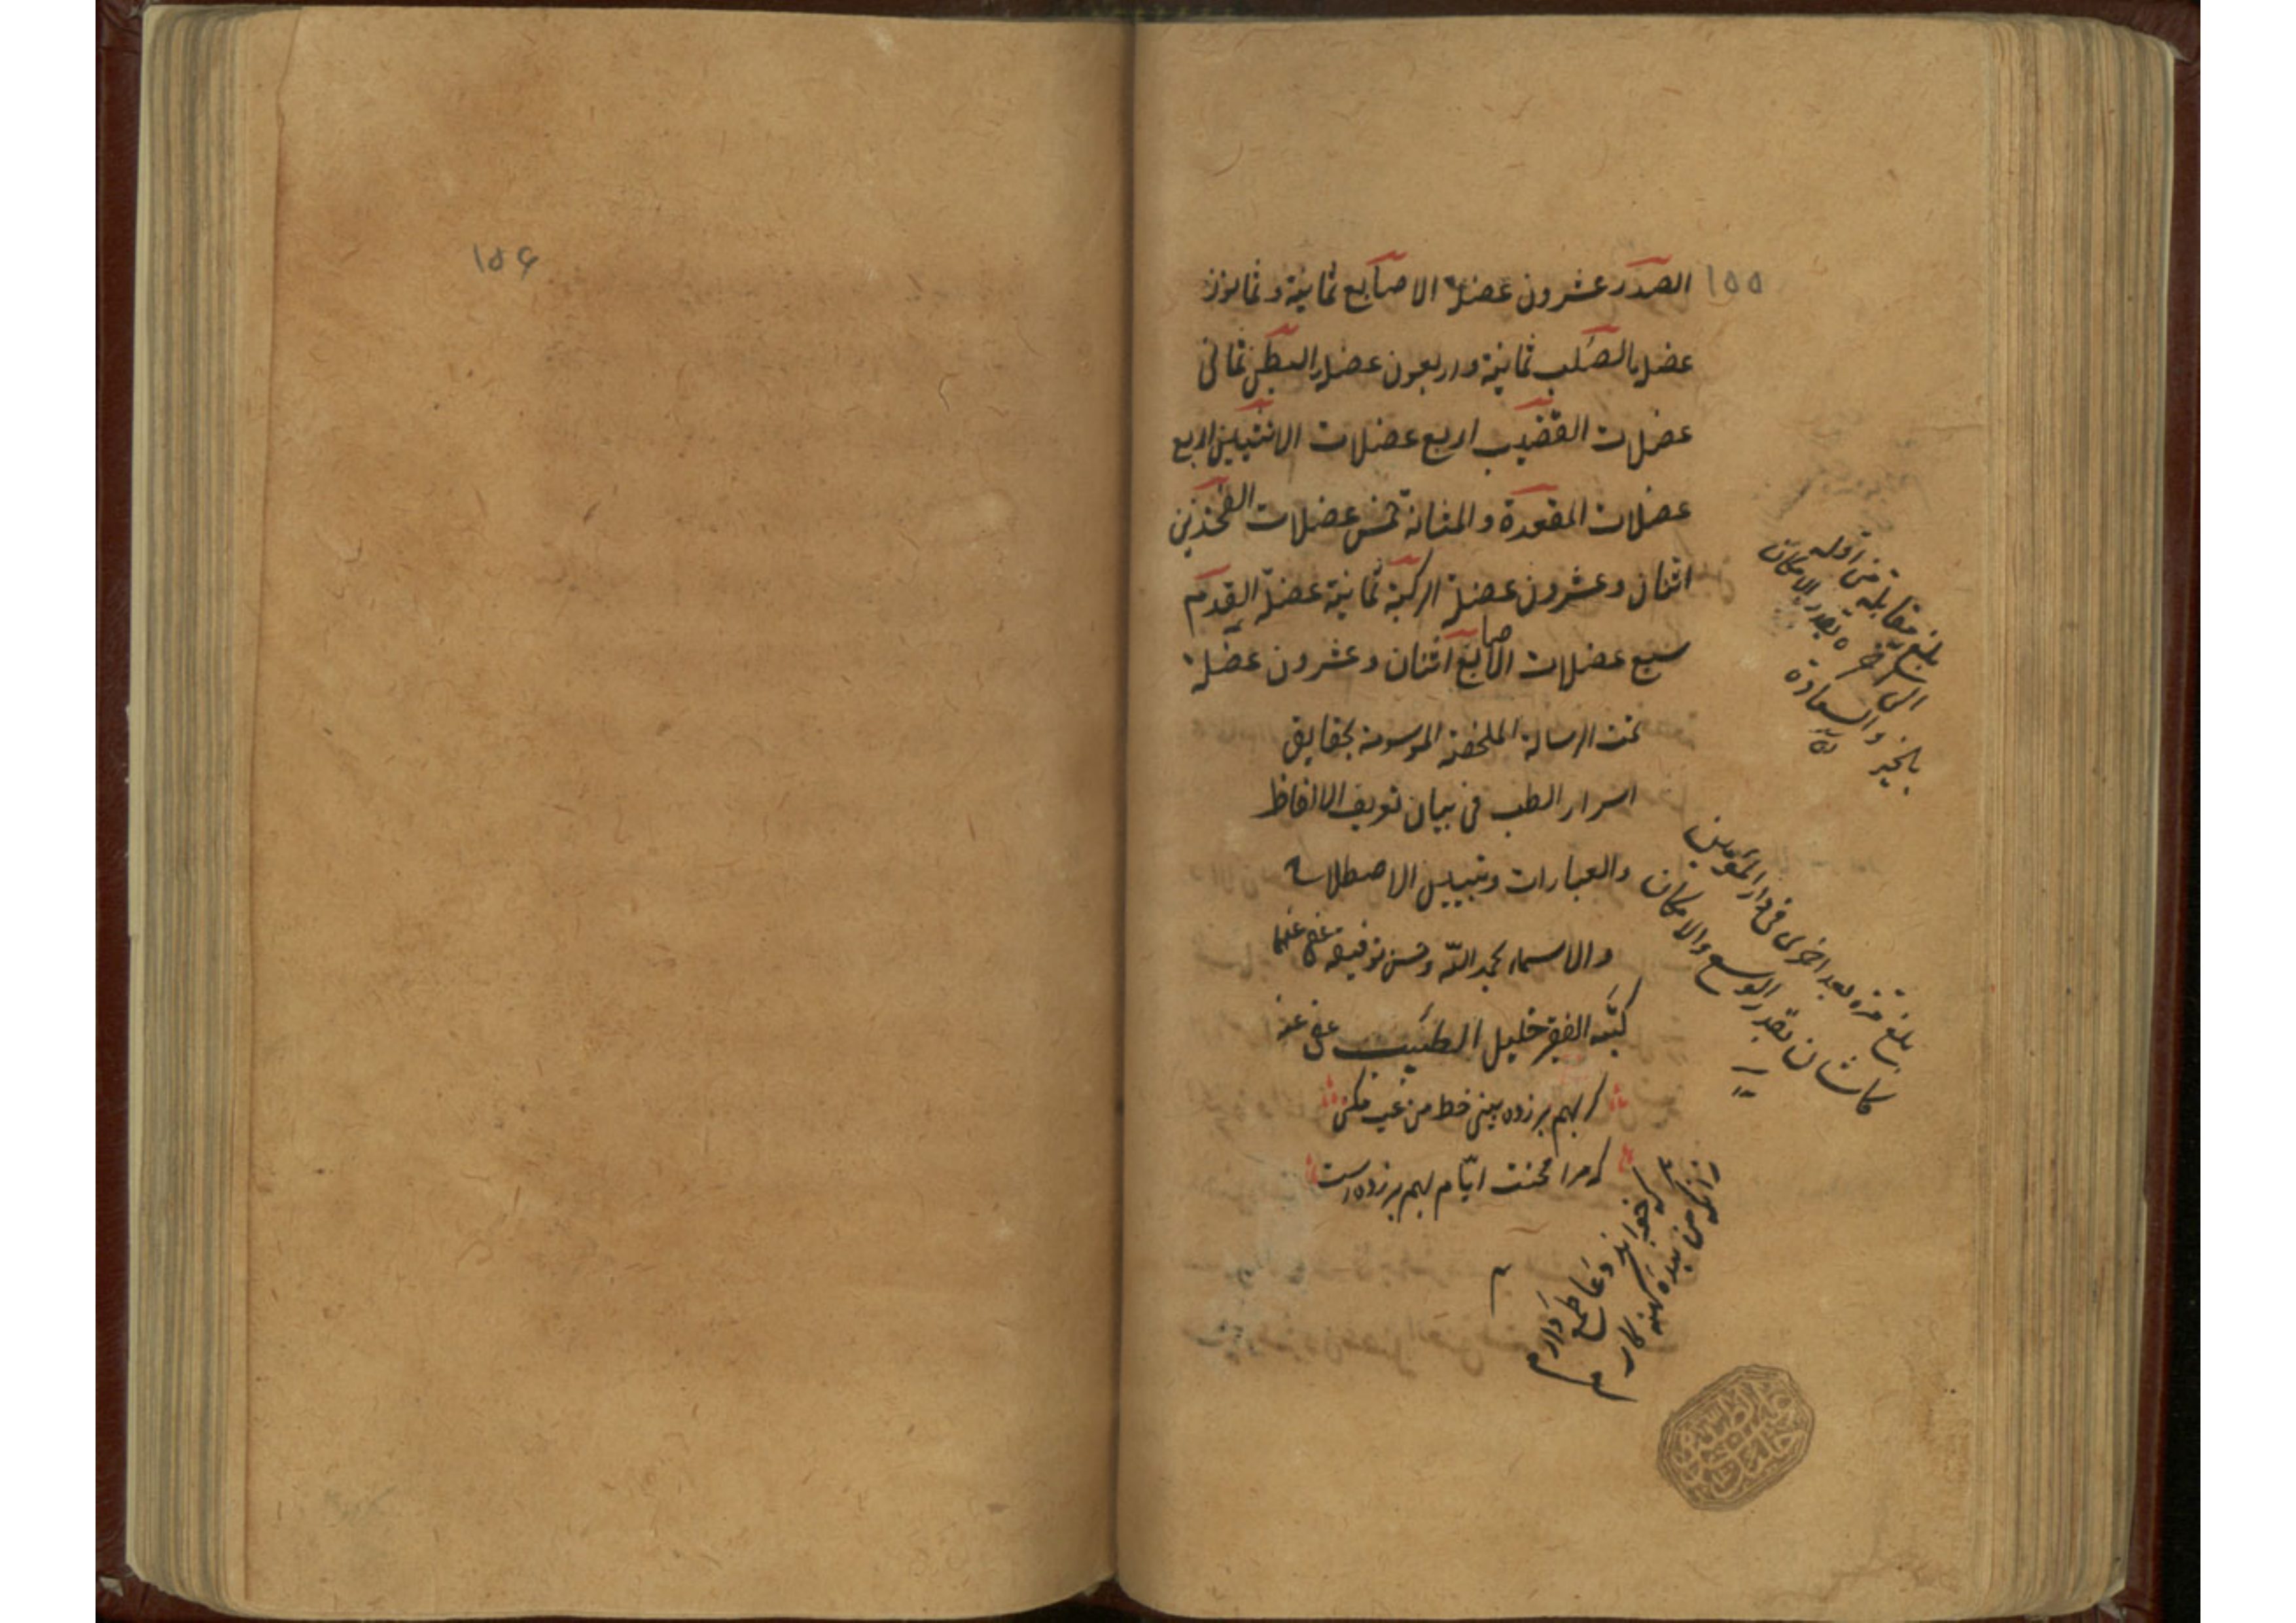 ١٥٥
الصدر عشرون عضلة الاصابع ثمانية وثمانون
عضلة الصلب ثمانية واربعون عضلة البطن ثماني
عضلات القضيب اربع عضلات الانثيين اربع
عضلات المقعدة والمثانة خمس عضلات الفخذين
اثنان وعشرون عضلة الركبة ثمانية عضلة القدم
سبع عضلات الاصابع اثنان وعشرون عضلة
تمت الرسالة الملخصة الموسومة بحقايق
اسرار الطب في بيان تعريف الالفاظ
والعبارات وتبيين الاصطلاحات
والاسماء بحمد الله وحسن توفيقه
كتبه الفقير خليل الطبيب عفي عنه
كر بهم بر زده بيني خط من عيب مكن
كه مرا محنت ايّام بهم بر زده است
كه خواند دعا طمع دارم
زانكه من بنده كنه كارم
بلغ مقابلة من اوله
الى آخره بقدر الامكان
بالخير والسعادة
بلغ مرة بعد اخرى في دار المؤمنين
كاشان بقدر الوسع والامكان
١٥۶